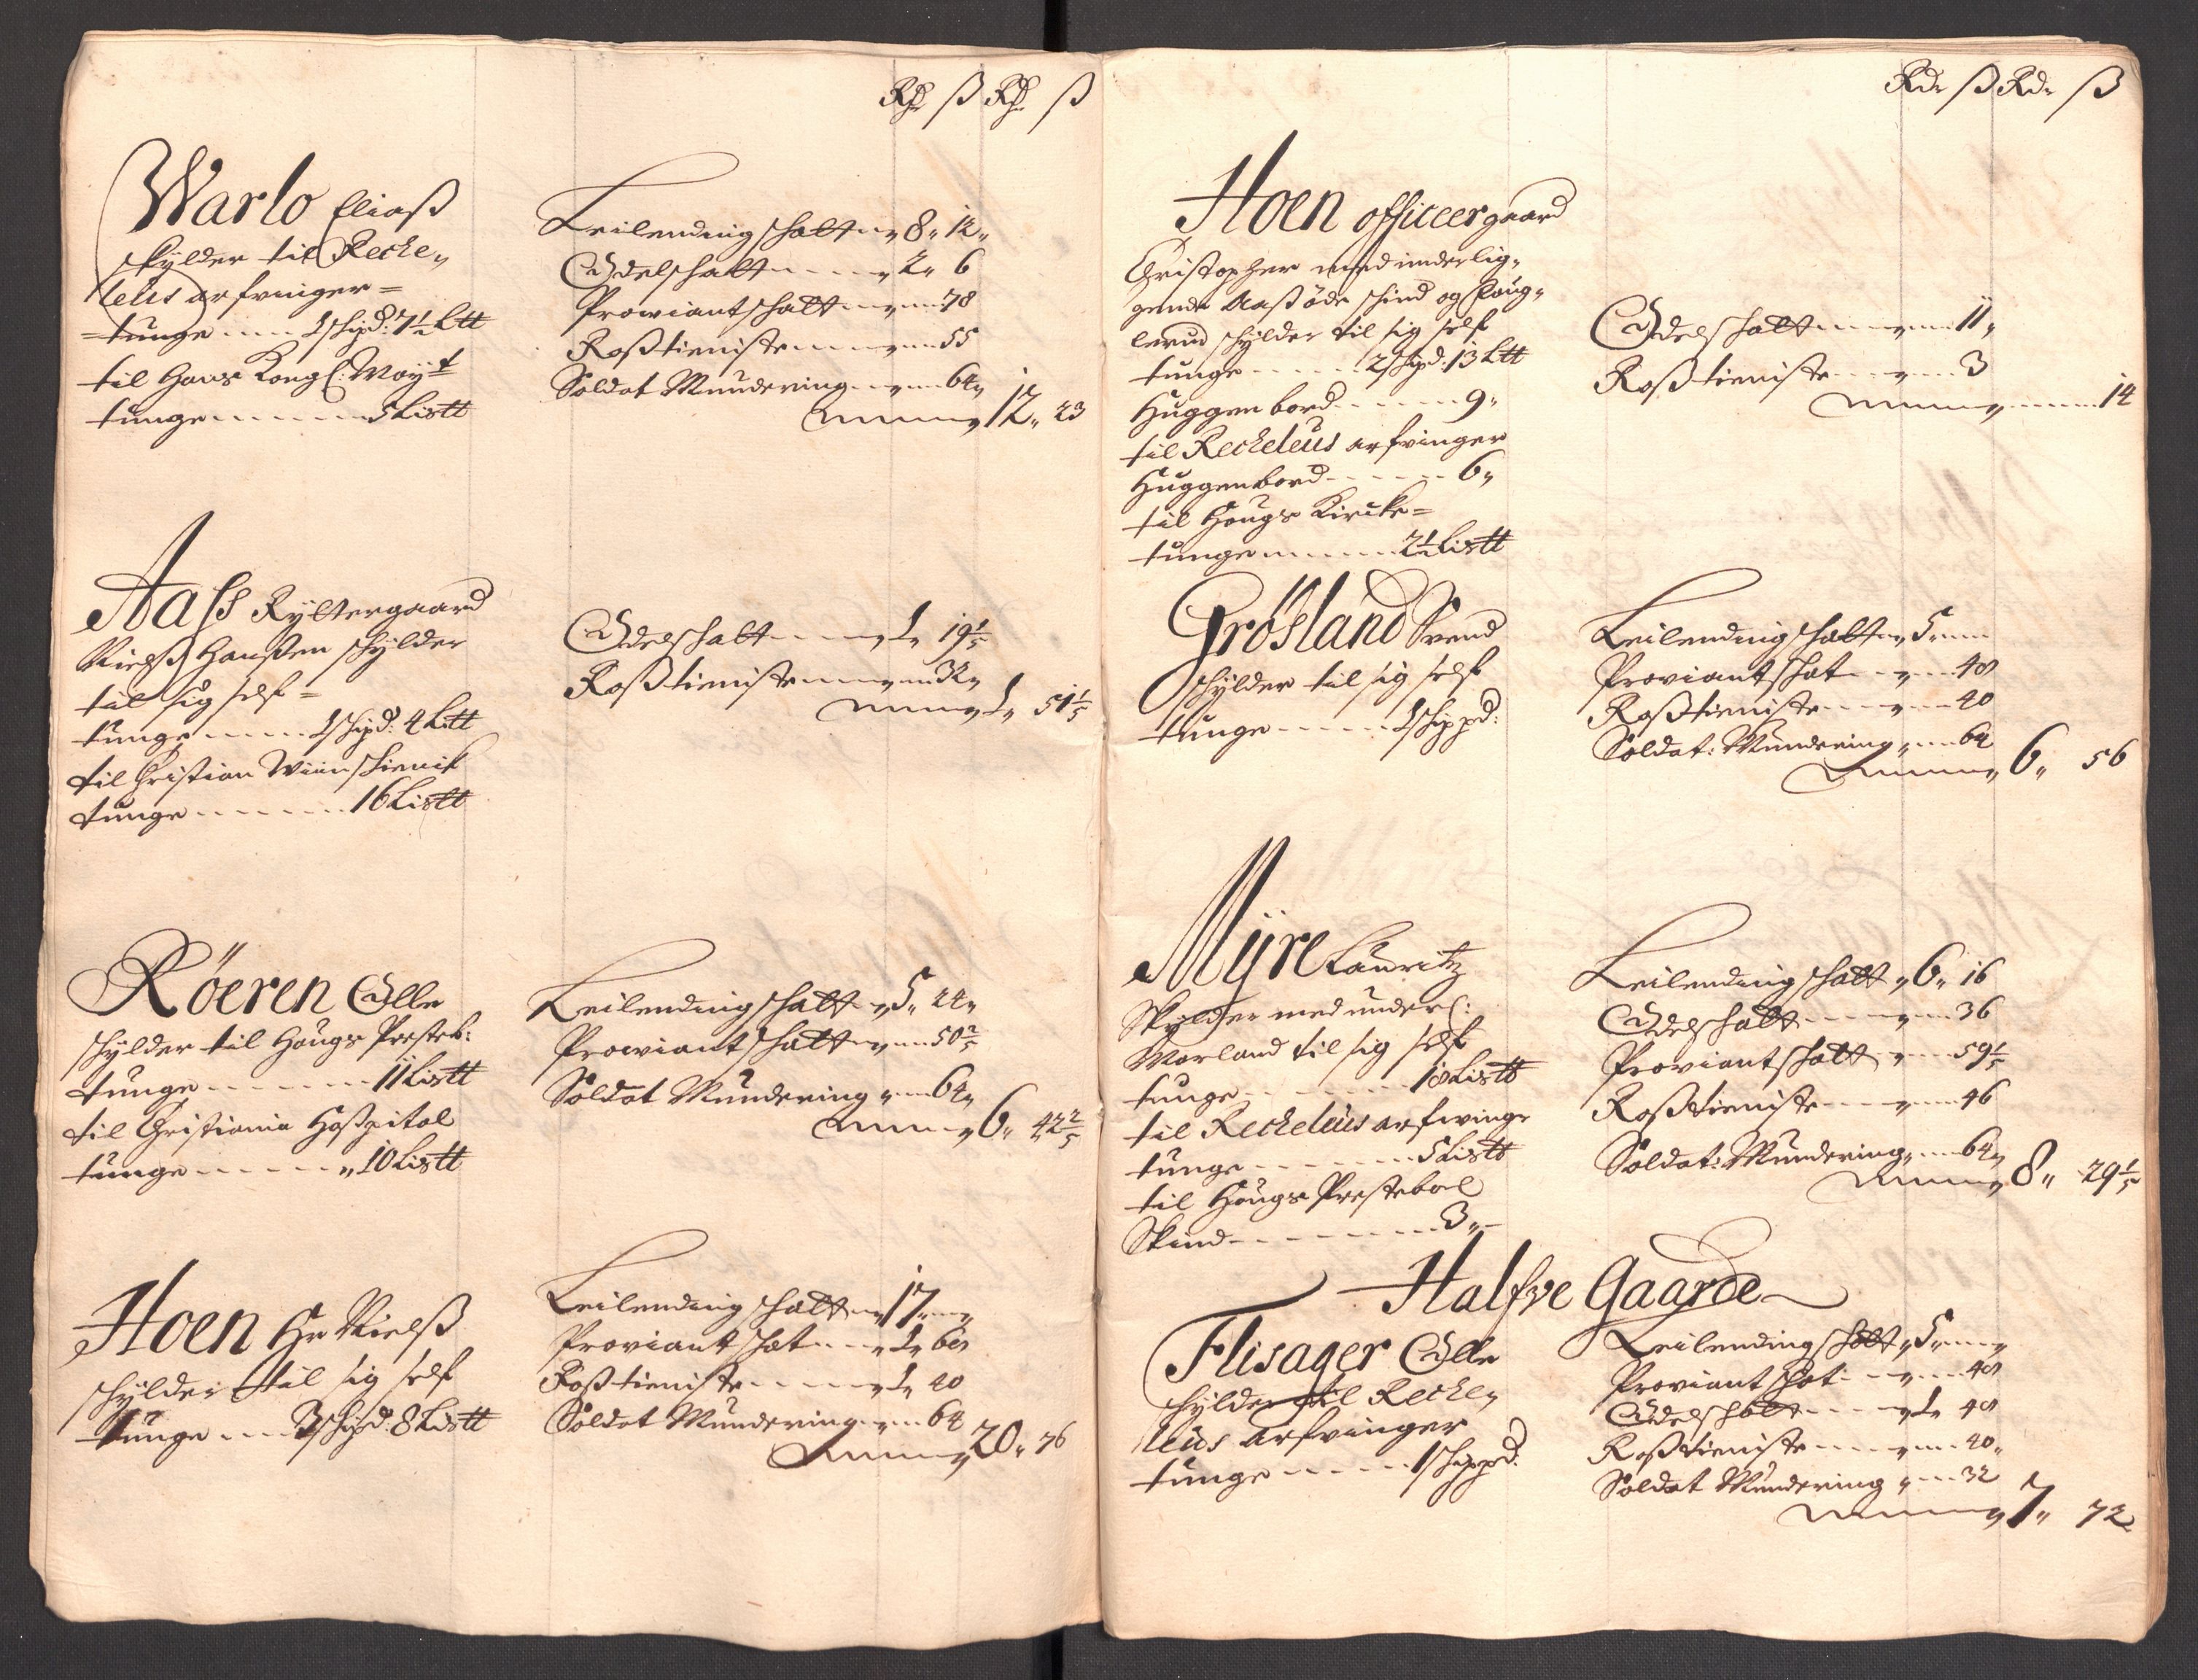 Rd ß Rd ß
Warlo Eliaß
skylder til Recke„
leus arfvinger =
= tunge 1 schpd: 7½ Ltt
til Hans Kongl: Mayt
tunge 5 Listt
Leilending schatt 8„ 12„
Odelschatt 2„ 6
Prowiantschatt 78
Roßtieniste 55
Soldat Mundering 64„
12„ 23
Aass Ryttergaard
Nielß Hanßen schylder
til sig self =
tunge 1 schpd: 4 Ltt
til Christian Wiinschenk
tunge 16 Listt
Odelschatt 1„ 19⅕
Roßtieniste 32„
1„ 51⅕
Röeren Olle
schylder til Hougs Presteb:
tunge 11 Listt
til Christiania Hoßpital
tunge „ 10 Listt
Leilending schatt 5„ 24„
Prowiant schatt 50⅖
Soldat Mundering 64„
6„ 42⅖
Hoen Hr Nielß
schylder til sig self
tunge 3 schpd: 8 Listt
Leilending schatt 17
Proviant schat 1„ 68
Roßtieniste 1„ 40
Soldat Mundering 64
20„ 76
Rdr ß Rdr ß
Hoen officeergaard
Christopher med underlig„
gende Aaß öde schind og
lerud schylder til sig self
tunge 2 schpd: 13 Ltt
Huggen bord 9„
til Reckeleus arfvinger
Huggenbord 6„
til Hougs Kircke =
tunge 2½ Listt
Odelschatt 11„
Roßtieniste 3
14
Grösland Svend
schylder til sig self
tunge 1 schippd:
Leilending schatt 5
Proviant schat 48
Roßtieniste 40
Soldat: Mundering 64
6„ 56
Myre Lauritz
Skylder med underl:
Morland til sig self
tunge 18 Listt
til Reckeleus arfwinge
tunge 5 Listt
til Hougs Prestebol
Skind 3„
Leilending schatt „6„ 16
Odelschatt 36
Proviantschatt 59⅕
Roßtieniste 46
Soldat: Mundering 64„
8„ 29⅕
Halfve Gaarde
Flisager Olle
schylder til Recke„
leus arfvinger
tunge 1 schippd:
Leilending schatt „5„
Proviant schat 48
Odelschatt 1„ 48
Roßtieniste 40„
Soldat Mundering 32
7„ 72